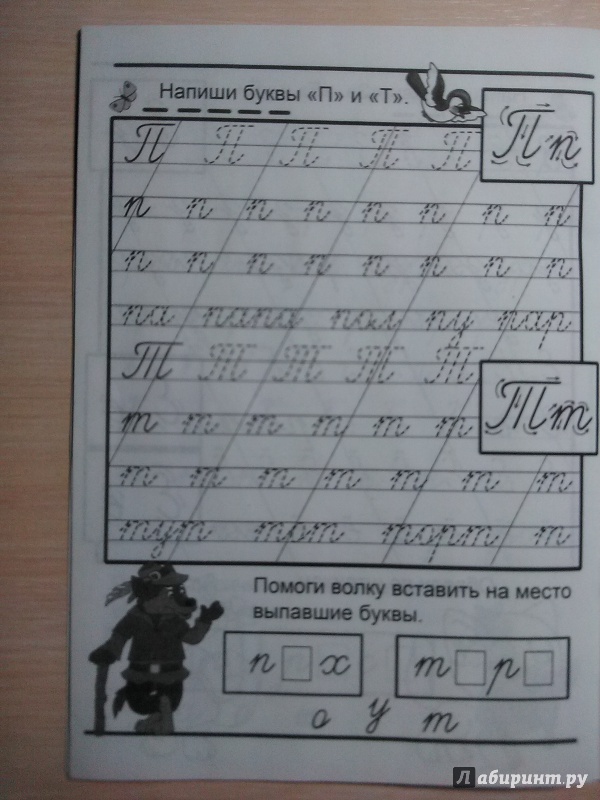 Напиши буквы «П» и «Т».
П П П П П
Пп
п п п п п п п п
п п п п п п п п
па папа пол пу пар
Т Т Т Т Т
Тт
т т т т т т
т т т т т т т
тут торт т
Помоги волку вставить на место
выпавшие буквы.
п х т р
о у т
Лабиринт.ру